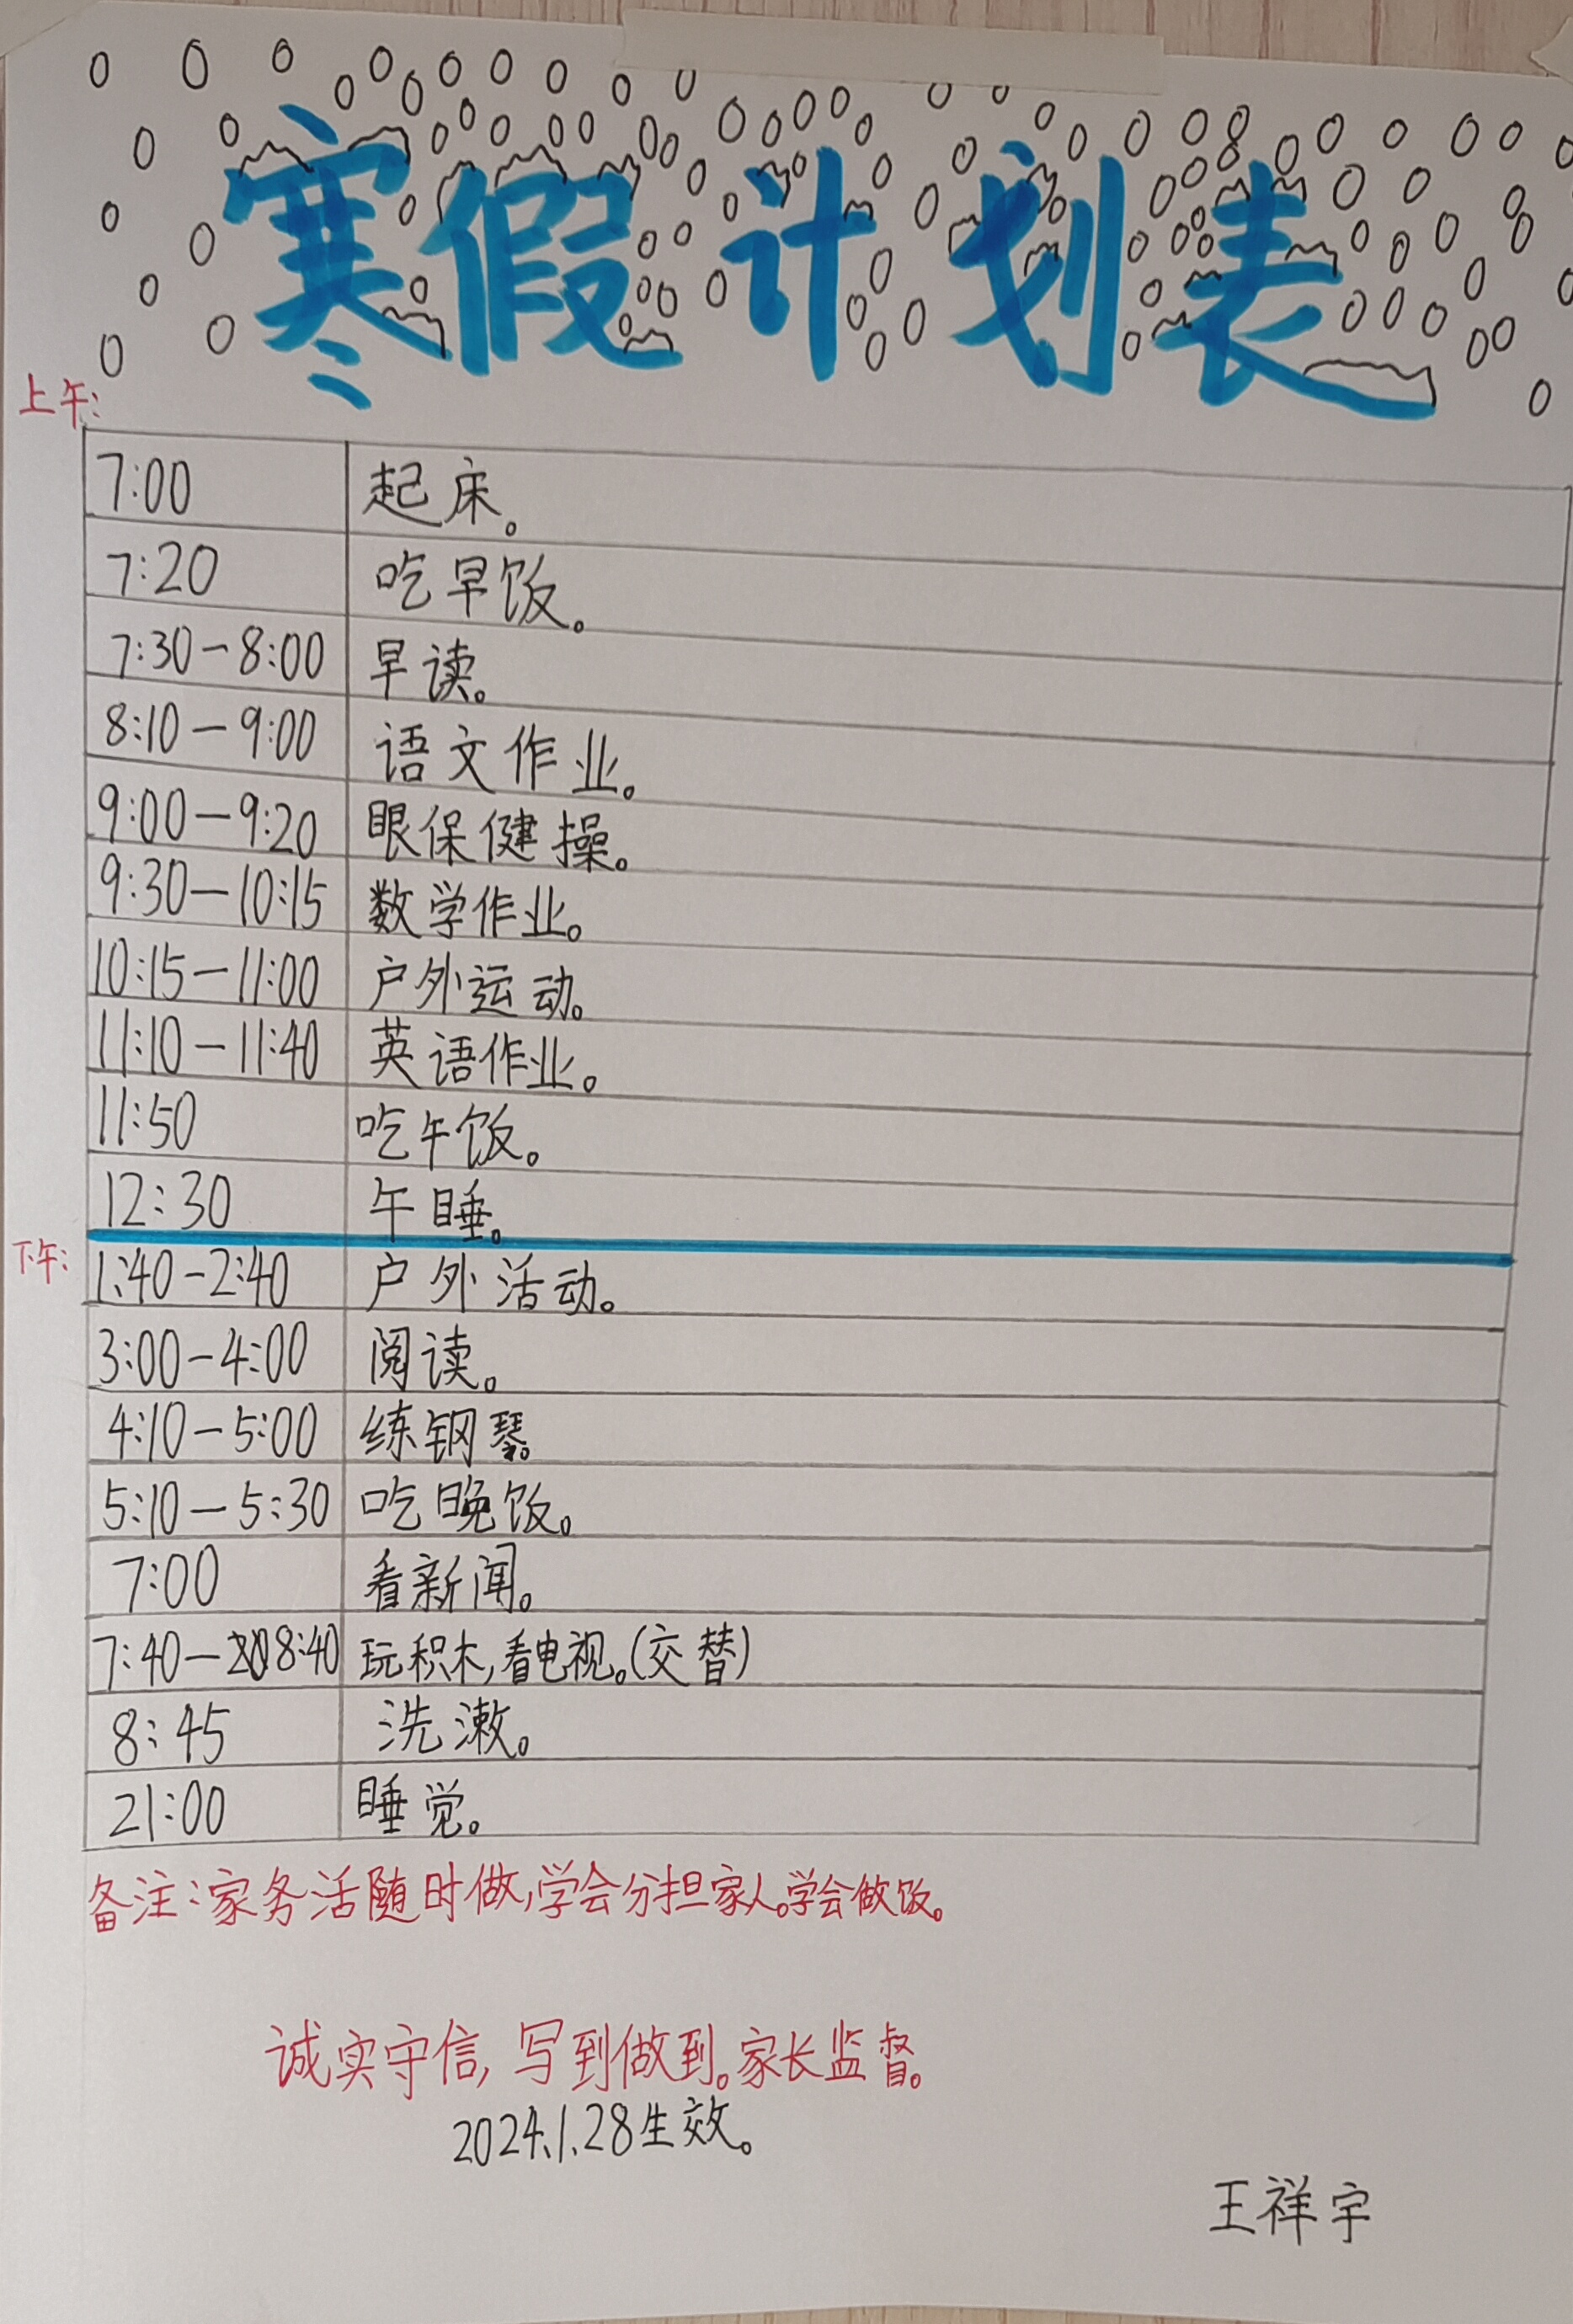 寒假计划表
上午:
7:00 起床。
7:20 吃早饭。
7:30—8:00 早读。
8:10—9:00 语文作业。
9:00—9:20 眼保健操。
9:30—10:15 数学作业。
10:15—11:00 户外运动。
11:10—11:40 英语作业。
11:50 吃午饭。
12:30 午睡。
下午:
1:40-2:40 户外活动。
3:00-4:00 阅读。
4:10-5:00 练钢琴。
5:10—5:30 吃晚饭。
7:00 看新闻。
7:40—8:40 玩积木,看电视。(交替)
8:45 洗漱。
21:00 睡觉。
备注:家务活随时做,学会分担家人。学会做饭。
诚实守信,写到做到。家长监督。
2024.1.28生效。
王祥宇